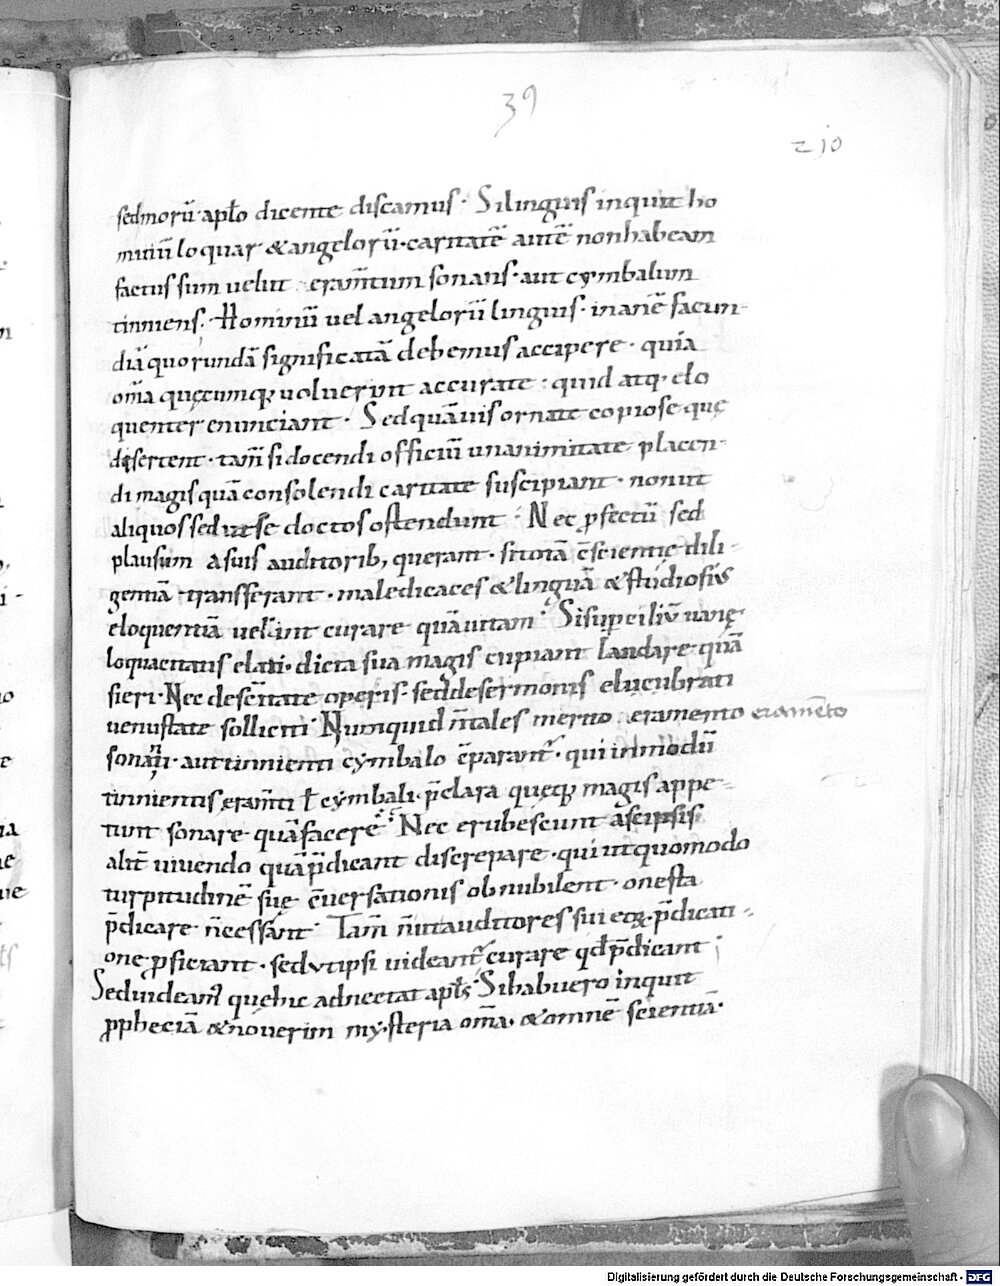 39
210
sedmorū apło dicente discamus. Silinguis inquit ho
minū loquar &angelorū. caritatē autē nonhabeam
factus sum uelut eram̄tum sonans. aut cymbalum
tinniens. Hominū uel angelorū linguis. inanē facun-
diā quorundā significatā debemus accipere. quia
om̄a quęcumq; uoluerint accurate. quid atq; elo
quenter enunciant. Sed quāuis ornate copiose quę
desertent. tam̄ si docendi officiū unanimitate placen-
di magis quā consolendi caritate suscipiant. non ut
aliquos sed ut se doctos ostendunt. Nec ꝓfectū sed
plausum a suis auditorib; querant. si totā scientię dili-
gentiā transferant. maledicaces & linguā & studiosis
eloquentiā uelint curare quā uitam. Si superciliū uanę
loquacitatis elati. dicta sua magis cupiant laudare quā
fieri. Nec de sc̄itate operis. sed de sermonis elucubrati
uenustate solliciti. Numquid m̄tales merito eramento eram̄eto
sonanti. aut tinnienti cymbalo c̄parant̄. qui in modū
tinnientis eram̄ti ł cymbali. p̄clara quęq; magis appe-
tunt sonare. quā facere. Nec erubescunt a se ipsis
alit̄ uiuendo quā p̄dicant discrepare. qui ut quomodo
turpitudinē suę c̄uersationis obnubilent. onesta
p̄dicare n̄ cessant. Tam̄ n̄ ut auditores sui eoꝝ p̄dicati-
one ꝓficiant. sed ut ipsi uideant̄ curare qđ p̄dicant;
Sed uideam' que huic adnectat apłs. Si habuero inquit
ꝓpheciā & nouerim mysteria om̄a. & omnē scientiā.
Digitalisierung gefördert durch die Deutsche Forschungsgemeinschaft - DFG